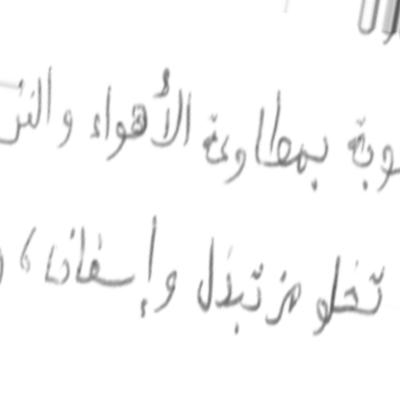 بمطاوعة الأهواء والنز
تخلو من تبذل وإسفاف،